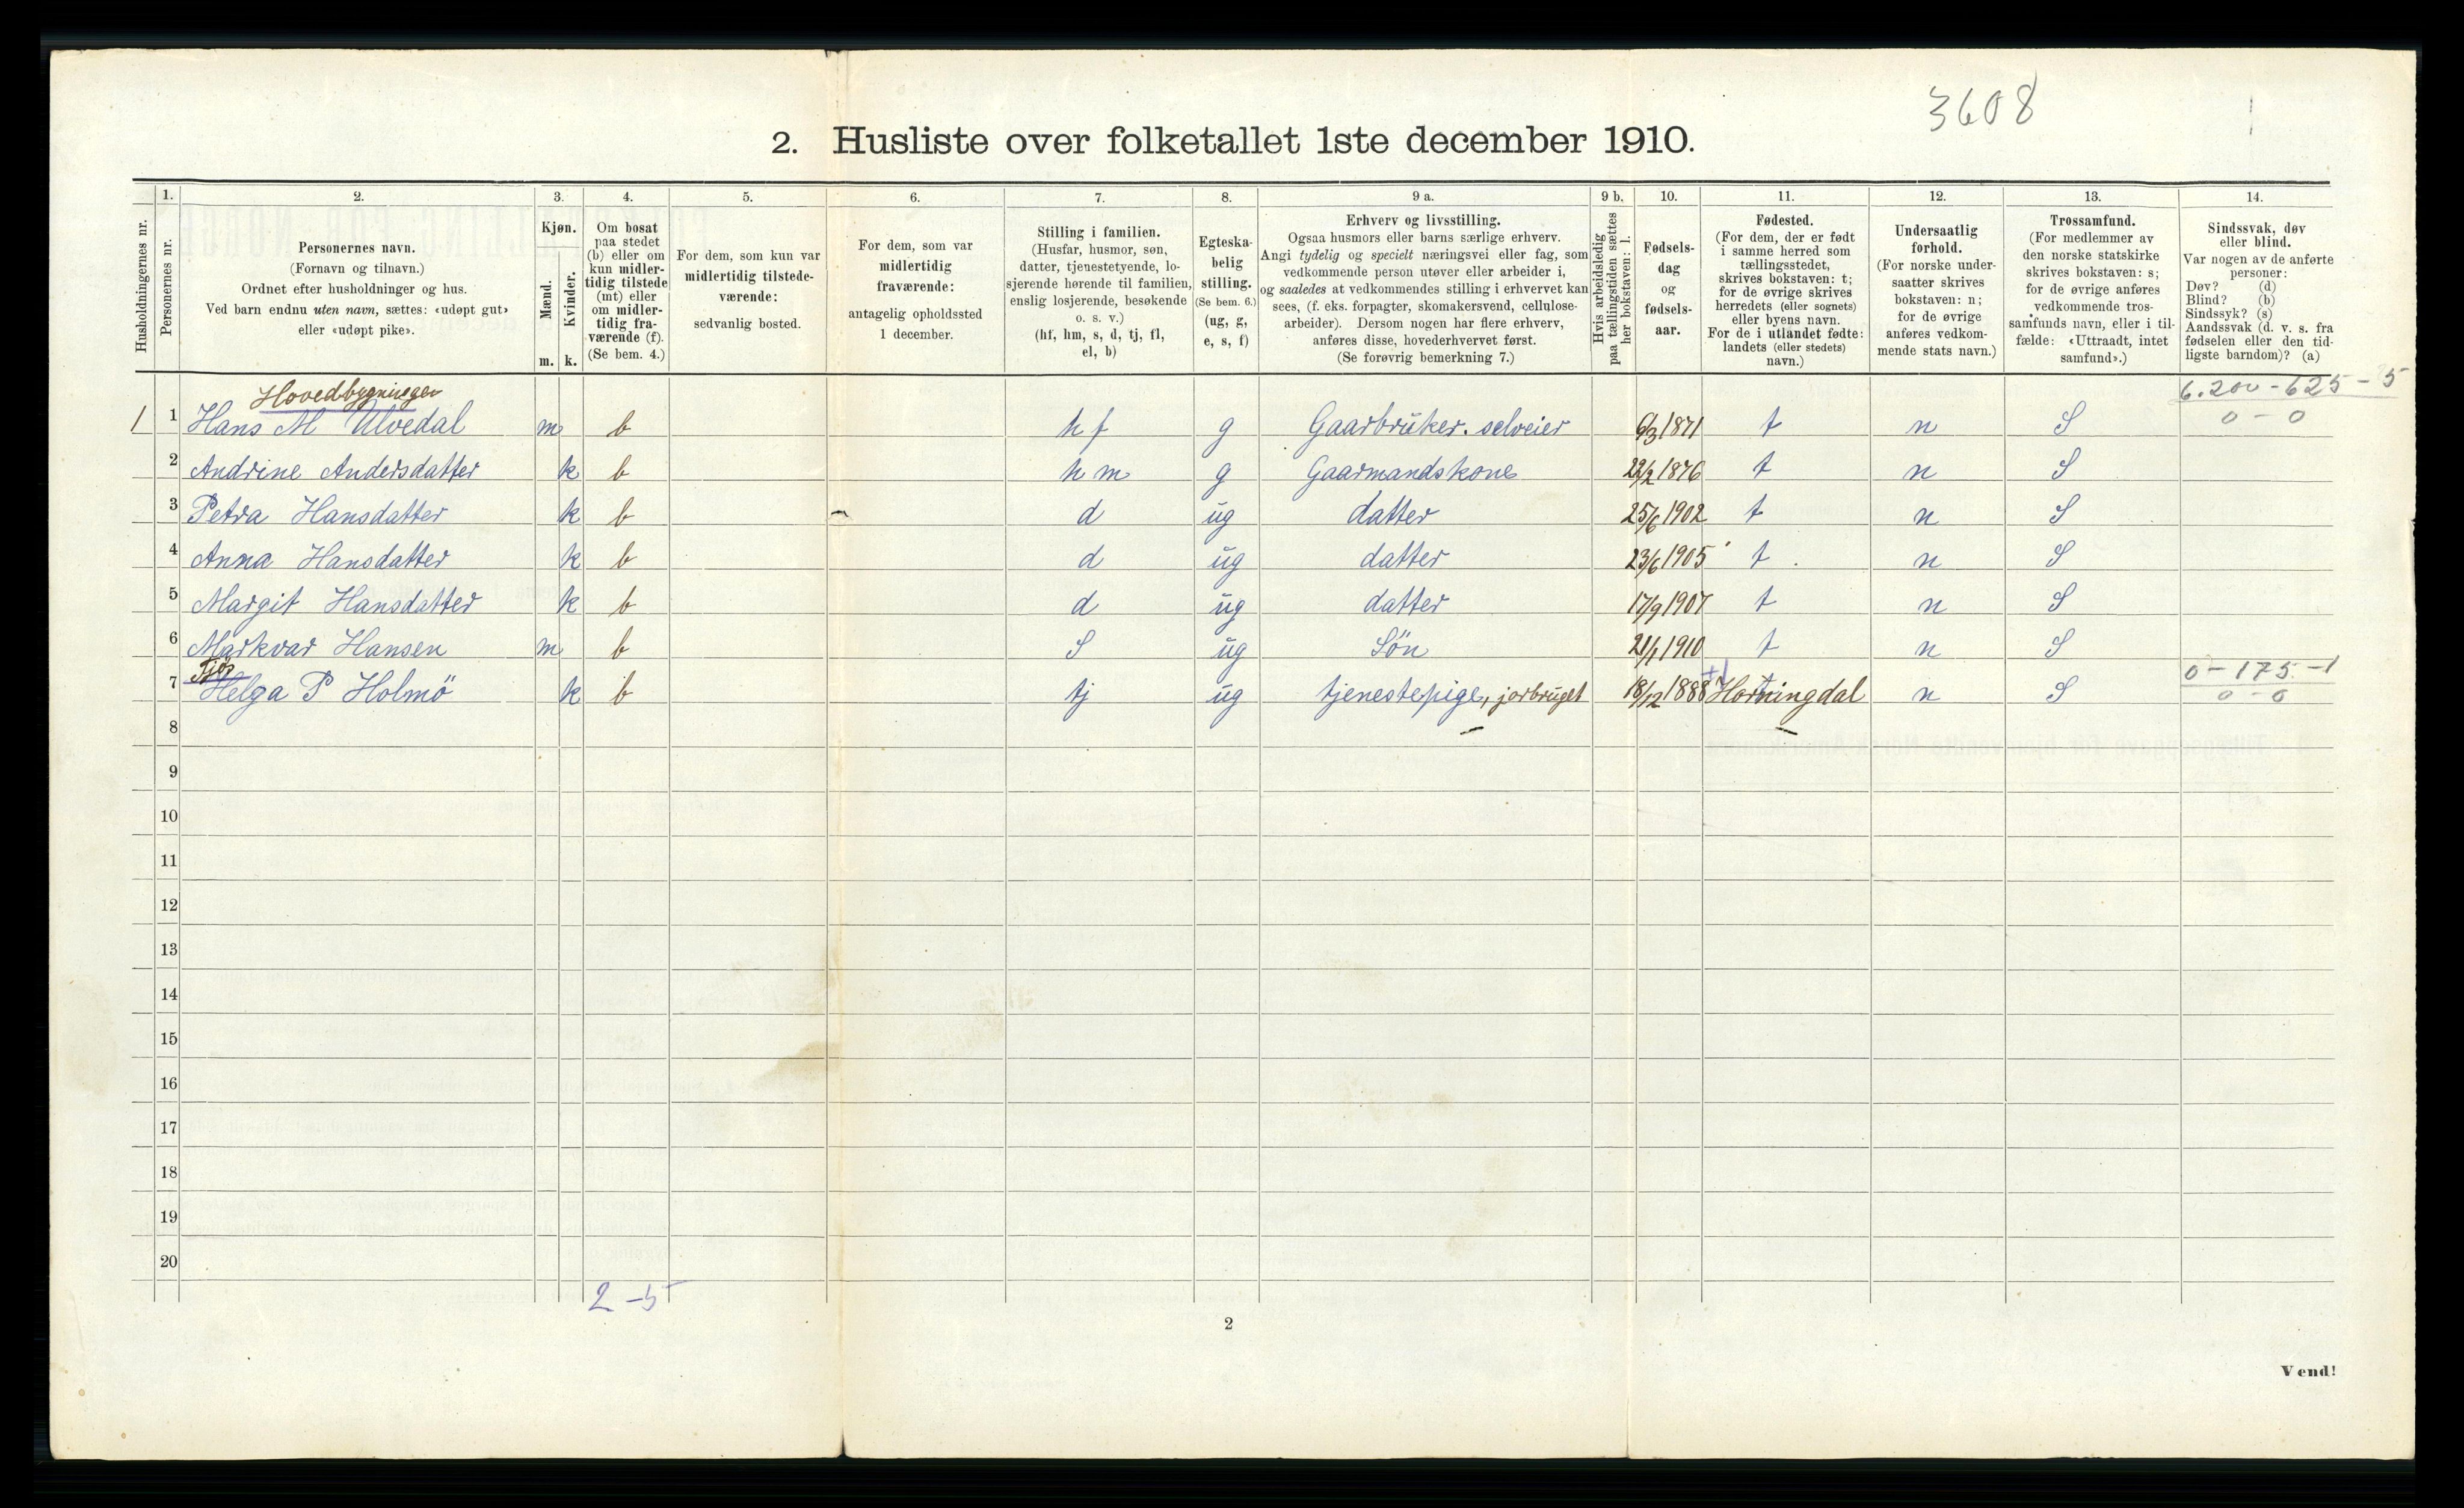 3608
2. Husliste over folketallet 1ste december 1910.
Husholdningernes nr.
1.
Personernes nr.
2.
Personernes navn.
(Fornavn og tilnavn.)
Ordnet efter husholdninger og hus.
Ved barn endnu uten navn, sættes: «udøpt gut»
eller «udøpt pike».
3.
Kjøn.
Mænd.
Kvinder.
m. k.
4.
Om bosat
paa stedet
(b) eller om
kun midler-
tidig tilstede
(mt) eller
om midler-
tidig fra-
værende (f).
(Se bem. 4.)
5.
For dem, som kun var
midlertidig tilstede-
værende:
sedvanlig bosted.
6.
For dem, som var
midlertidig
fraværende:
antagelig opholdssted
1 december.
7.
Stilling i familien.
(Husfar, husmor, søn,
datter, tjenestetyende, lo-
sjerende hørende til familien,
enslig losjerende, besøkende
o. s. v.)
(hf, hm, s, d, tj, fl,
el, b)
8.
Egteska-
belig
stilling.
(Se bem. 6.)
(ug, g,
e, s, f)
9 a.
Erhverv og livsstilling.
Ogsaa husmors eller barns særlige erhverv.
Angi tydelig og specielt næringsvei eller fag, som
vedkommende person utøver eller arbeider i,
og saaledes at vedkommendes stilling i erhvervet kan
sees, (f. eks. forpagter, skomakersvend, cellulose-
arbeider). Dersom nogen har flere erhverv,
anføres disse, hovederhvervet først.
(Se forøvrig bemerkning 7.)
9 b.
Hvis arbeidsledig
paa tællingstiden sættes
her bokstaven: l.
10.
Fødsels-
dag
og
fødsels-
aar.
11.
Fødested.
(For dem, der er født
i samme herred som
tællingsstedet,
skrives bokstaven: t;
for de øvrige skrives
herredets (eller sognets)
eller byens navn.
For de i utlandet fødte:
landets (eller stedets)
navn.)
12.
Undersaatlig
forhold.
(For norske under-
saatter skrives
bokstaven: n;
for de øvrige
anføres vedkom-
mende stats navn.)
13.
Trossamfund.
(For medlemmer av
den norske statskirke
skrives bokstaven: s;
for de øvrige anføres
vedkommende tros-
samfunds navn, eller i til-
fælde: «Uttraadt, intet
samfund».)
14.
Sindssvak, døv
eller blind.
Var nogen av de anførte
personer:
Døv? (d)
Blind? (b)
Sindssyk? (s)
Aandssvak (d. v. s. fra
fødselen eller den tid-
ligste barndom)? (a)
Hovedbygningen
6.200 - 625 - 5
1 1 Hans M Ulvedal m b hf g Gaarbruker. selveier 6/3 1871 t n S 0 - 0
2 Andrine Andersdatter k b hm g Gaarmandskone 22/2 1876 t n S
3 Petra Hansdatter k b d ug datter 25/6 1902 t n S
4 Anna Hansdatter k b d ug datter 23/6 1905 t n S
5 Margit Hansdatter k b d ug datter 17/9 1907 t n S
6 Markvar Hansen m b S ug Sön 21/1 1910 t n S
0 - 175 - 1
7 Helga P Holmö k b tj ug tjenestepige, jorbruget 18/12 1888 Horningdal n S 0 - 0
8
9
10
11
12
13
14
15
16
17
18
19
20
2 - 5
2
Vend!